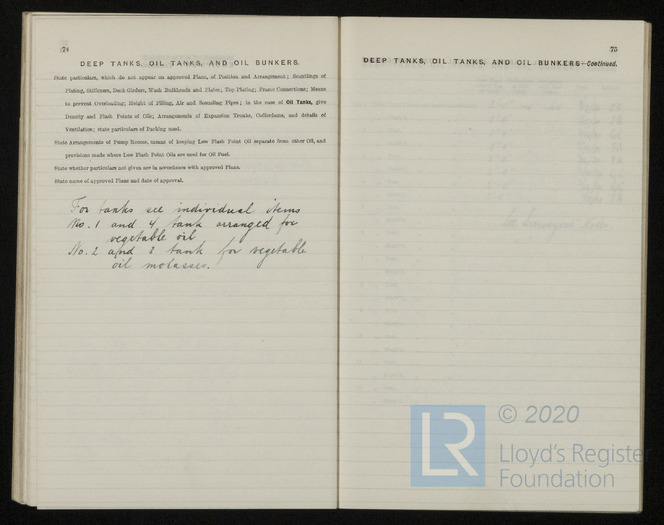 74
DEEP TANKS, OIL TANKS, AND OIL BUNKERS.
State particulars, which do not appear on approved Plans, of Position and Arrangement; Scantlings of
Plating, Stiffeners, Deck Girders, Wash Bulkheads and Plates; Top Plating; Frame Connections; Means
to prevent Overloading; Height of Filling, Air and Sounding Pipes; in the case of Oil Tanks, give
Density and Flash Points of Oils; Arrangements of Expansion Trunks, Cofferdams, and details of
Ventilation; state particulars of Packing used.
State Arrangements of Pump Rooms, means of keeping Low Flash Point Oil separate from other Oil, and
provisions made where Low Flash Point Oils are used for Oil Fuel.
State whether particulars not given are in accordance with approved Plans.
State name of approved Plans and date of approval.
For tanks see individual items
No. 1 and 4 tank arranged for
vegetable oil
No. 2 and 3 tank for vegetable
oil molasses.
75
DEEP TANKS, OIL TANKS, AND OIL BUNKERS—Continued.
LR
© 2020
Lloyd's Register
Foundation